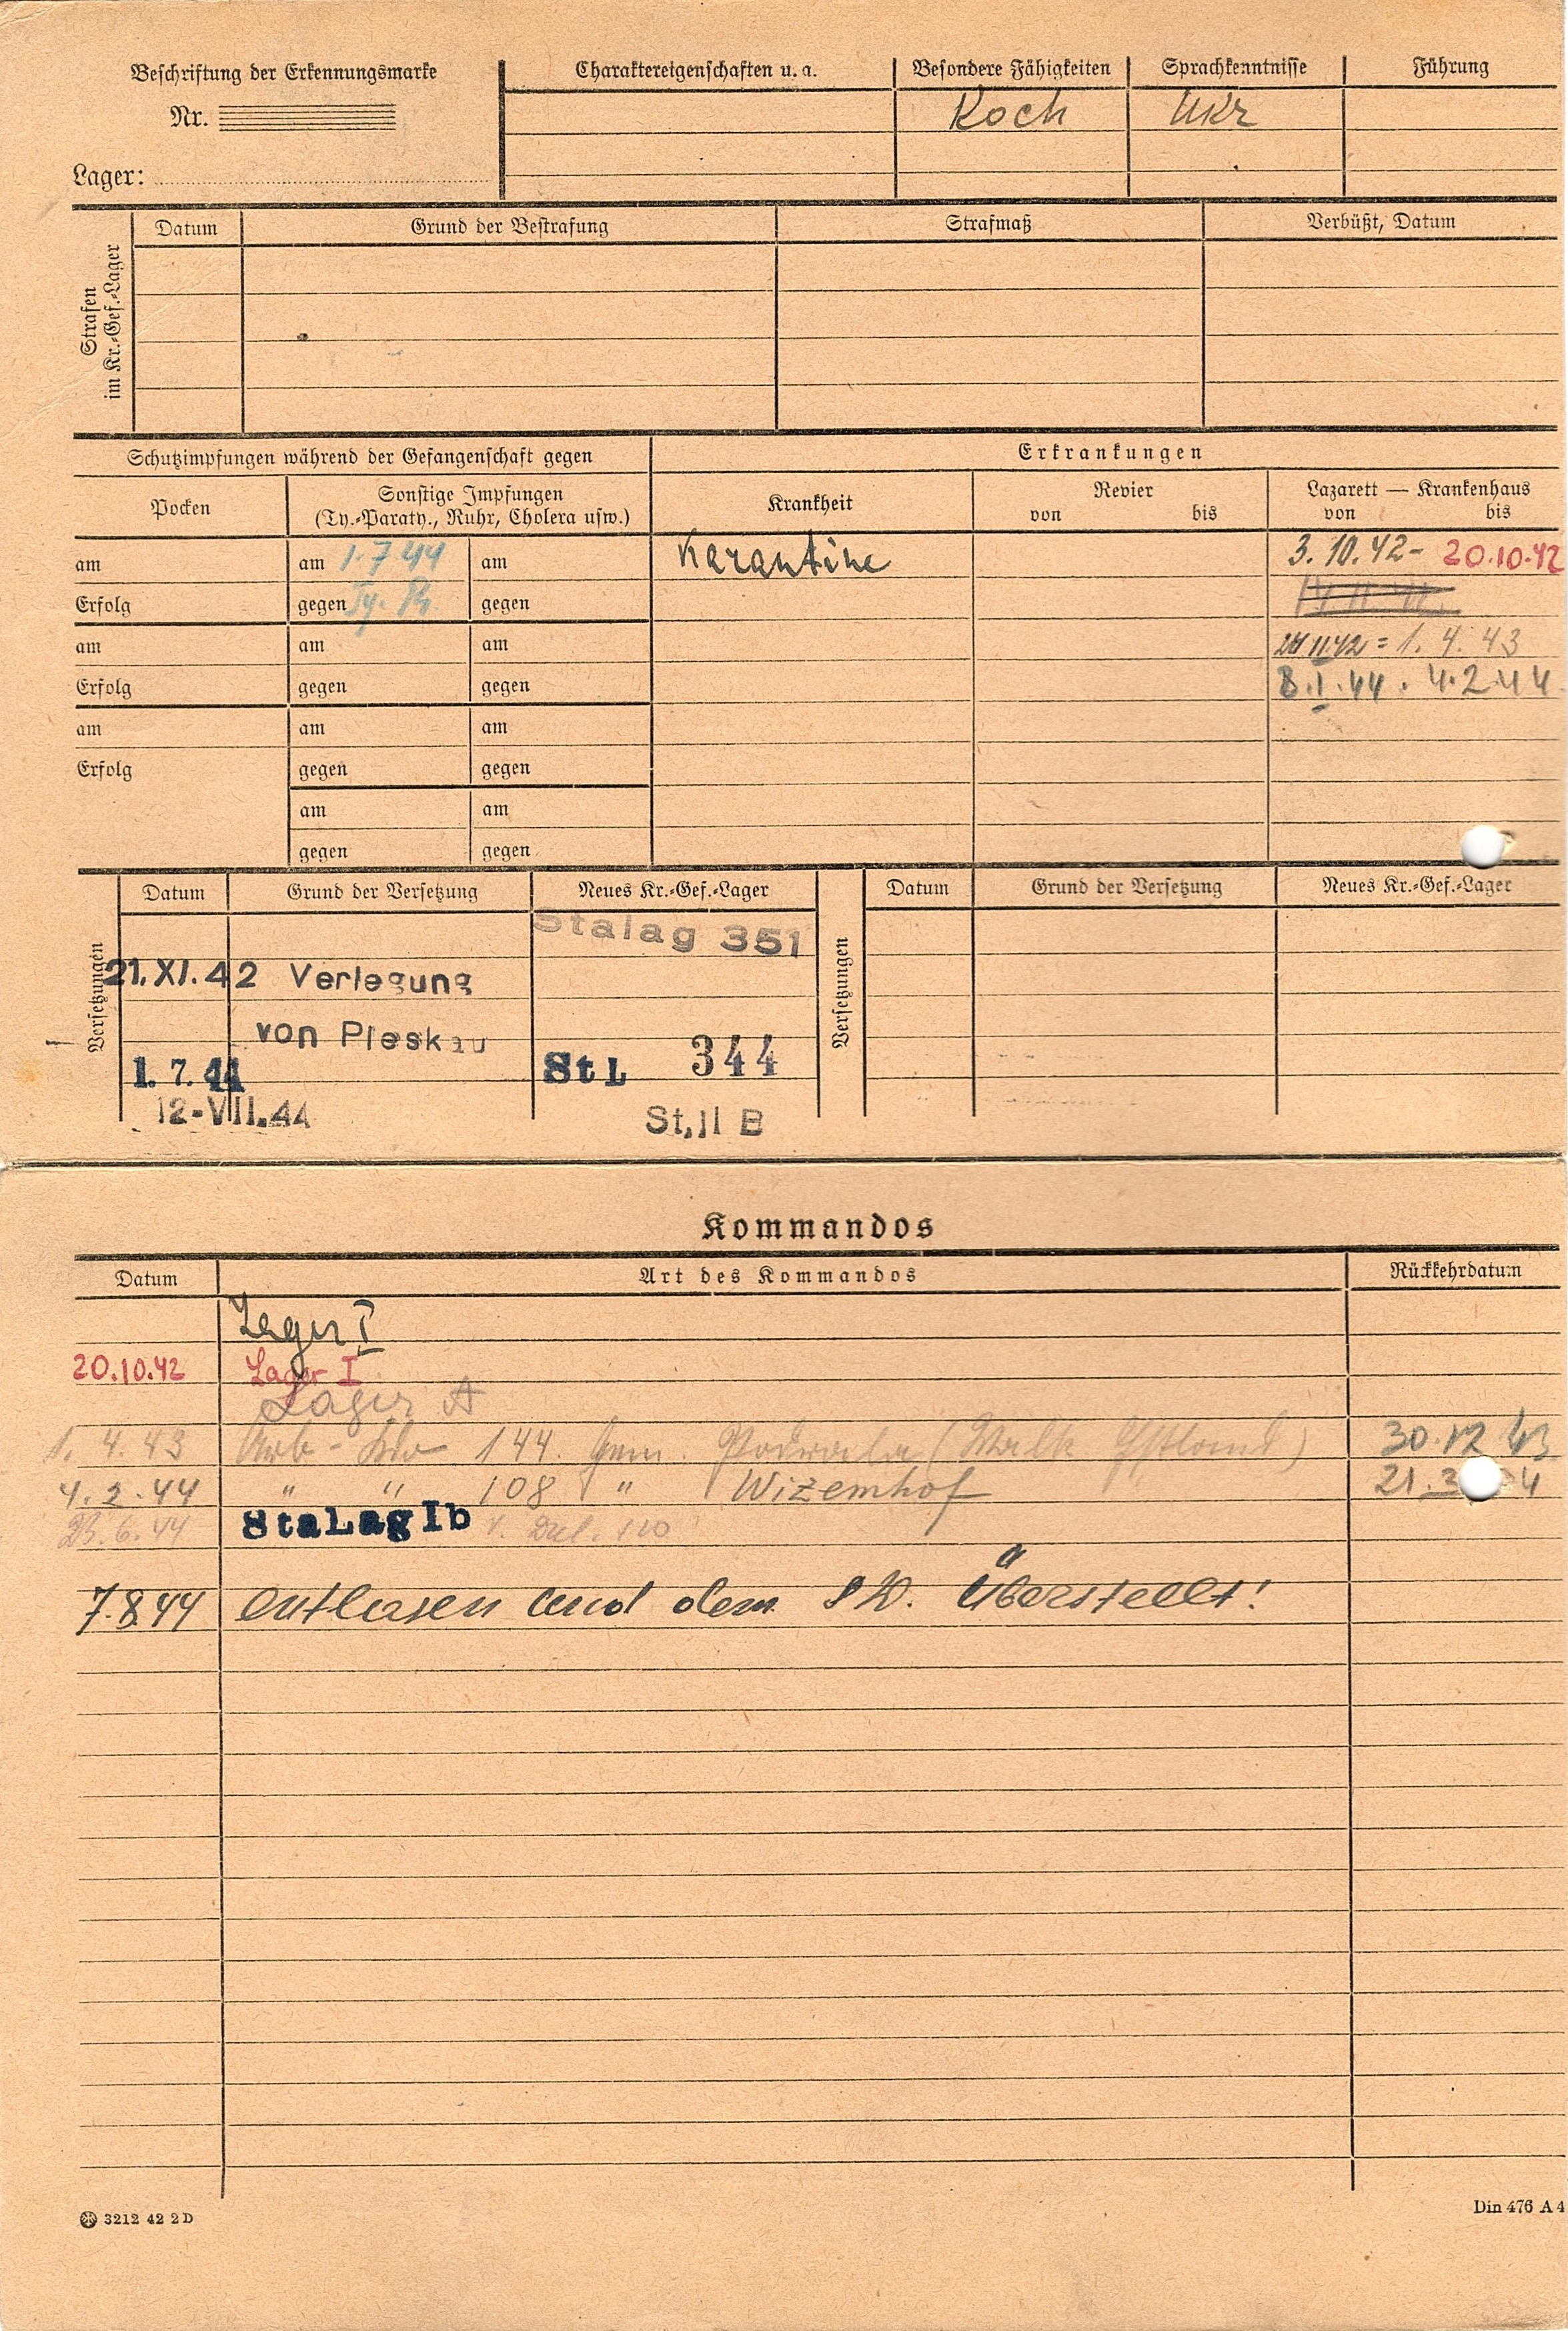 Beschriftung der Erkennungsmarke
Nr.
Lager:
Charaktereigenschaften u. a.
Besondere Fähigkeiten
Sprachkenntnisse
Führung
Koch
Ukr
Strafen
im Kr.-Gef.-Lager
Datum
Grund der Bestrafung
Strafmaß
Verbüßt, Datum
Schutzimpfungen während der Gefangenschaft gegen
Erkrankungen
Pocken
Sonstige Impfungen
(Ty.-Paraty., Ruhr, Cholera usw.)
Krankheit
Revier
von bis
Lazarett — Krankenhaus
von bis
am
am 1.7.44
am
Karantine
3.10.42- 20.10.42
Erfolg
gegen Ty.
gegen
am
am
am
24 11 42 = 1. 4. 43
Erfolg
gegen
gegen
8.I.44. 4.2.44
am
am
am
Erfolg
gegen
gegen
am
am
gegen
gegen
Versetzungen
Datum
Grund der Versetzung
Neues Kr.-Gef.-Lager
Versetzungen
Datum
Grund der Versetzung
Neues Kr.-Gef.-Lager
Stalag 351
21.XI.42 Verlegung
von Pleskau
1.7.44
StL 344
12-VII.44
St.II B
Kommandos
Datum
Art des Kommandos
Rückkehrdatum
Lager I
20.10.42 Lager I
Lager A
1. 4. 43 Arb-Kdo 144. Gem. (Walk Estland) 30.12 43
4.2.44 " " 108 " Wizemhof 21.3 4
23.6.44 StaLag Ib v. Dul. 110
7.8.44 entlasen und dem SD. Überstellt!
3212 42 2 D
Din 476 A 4